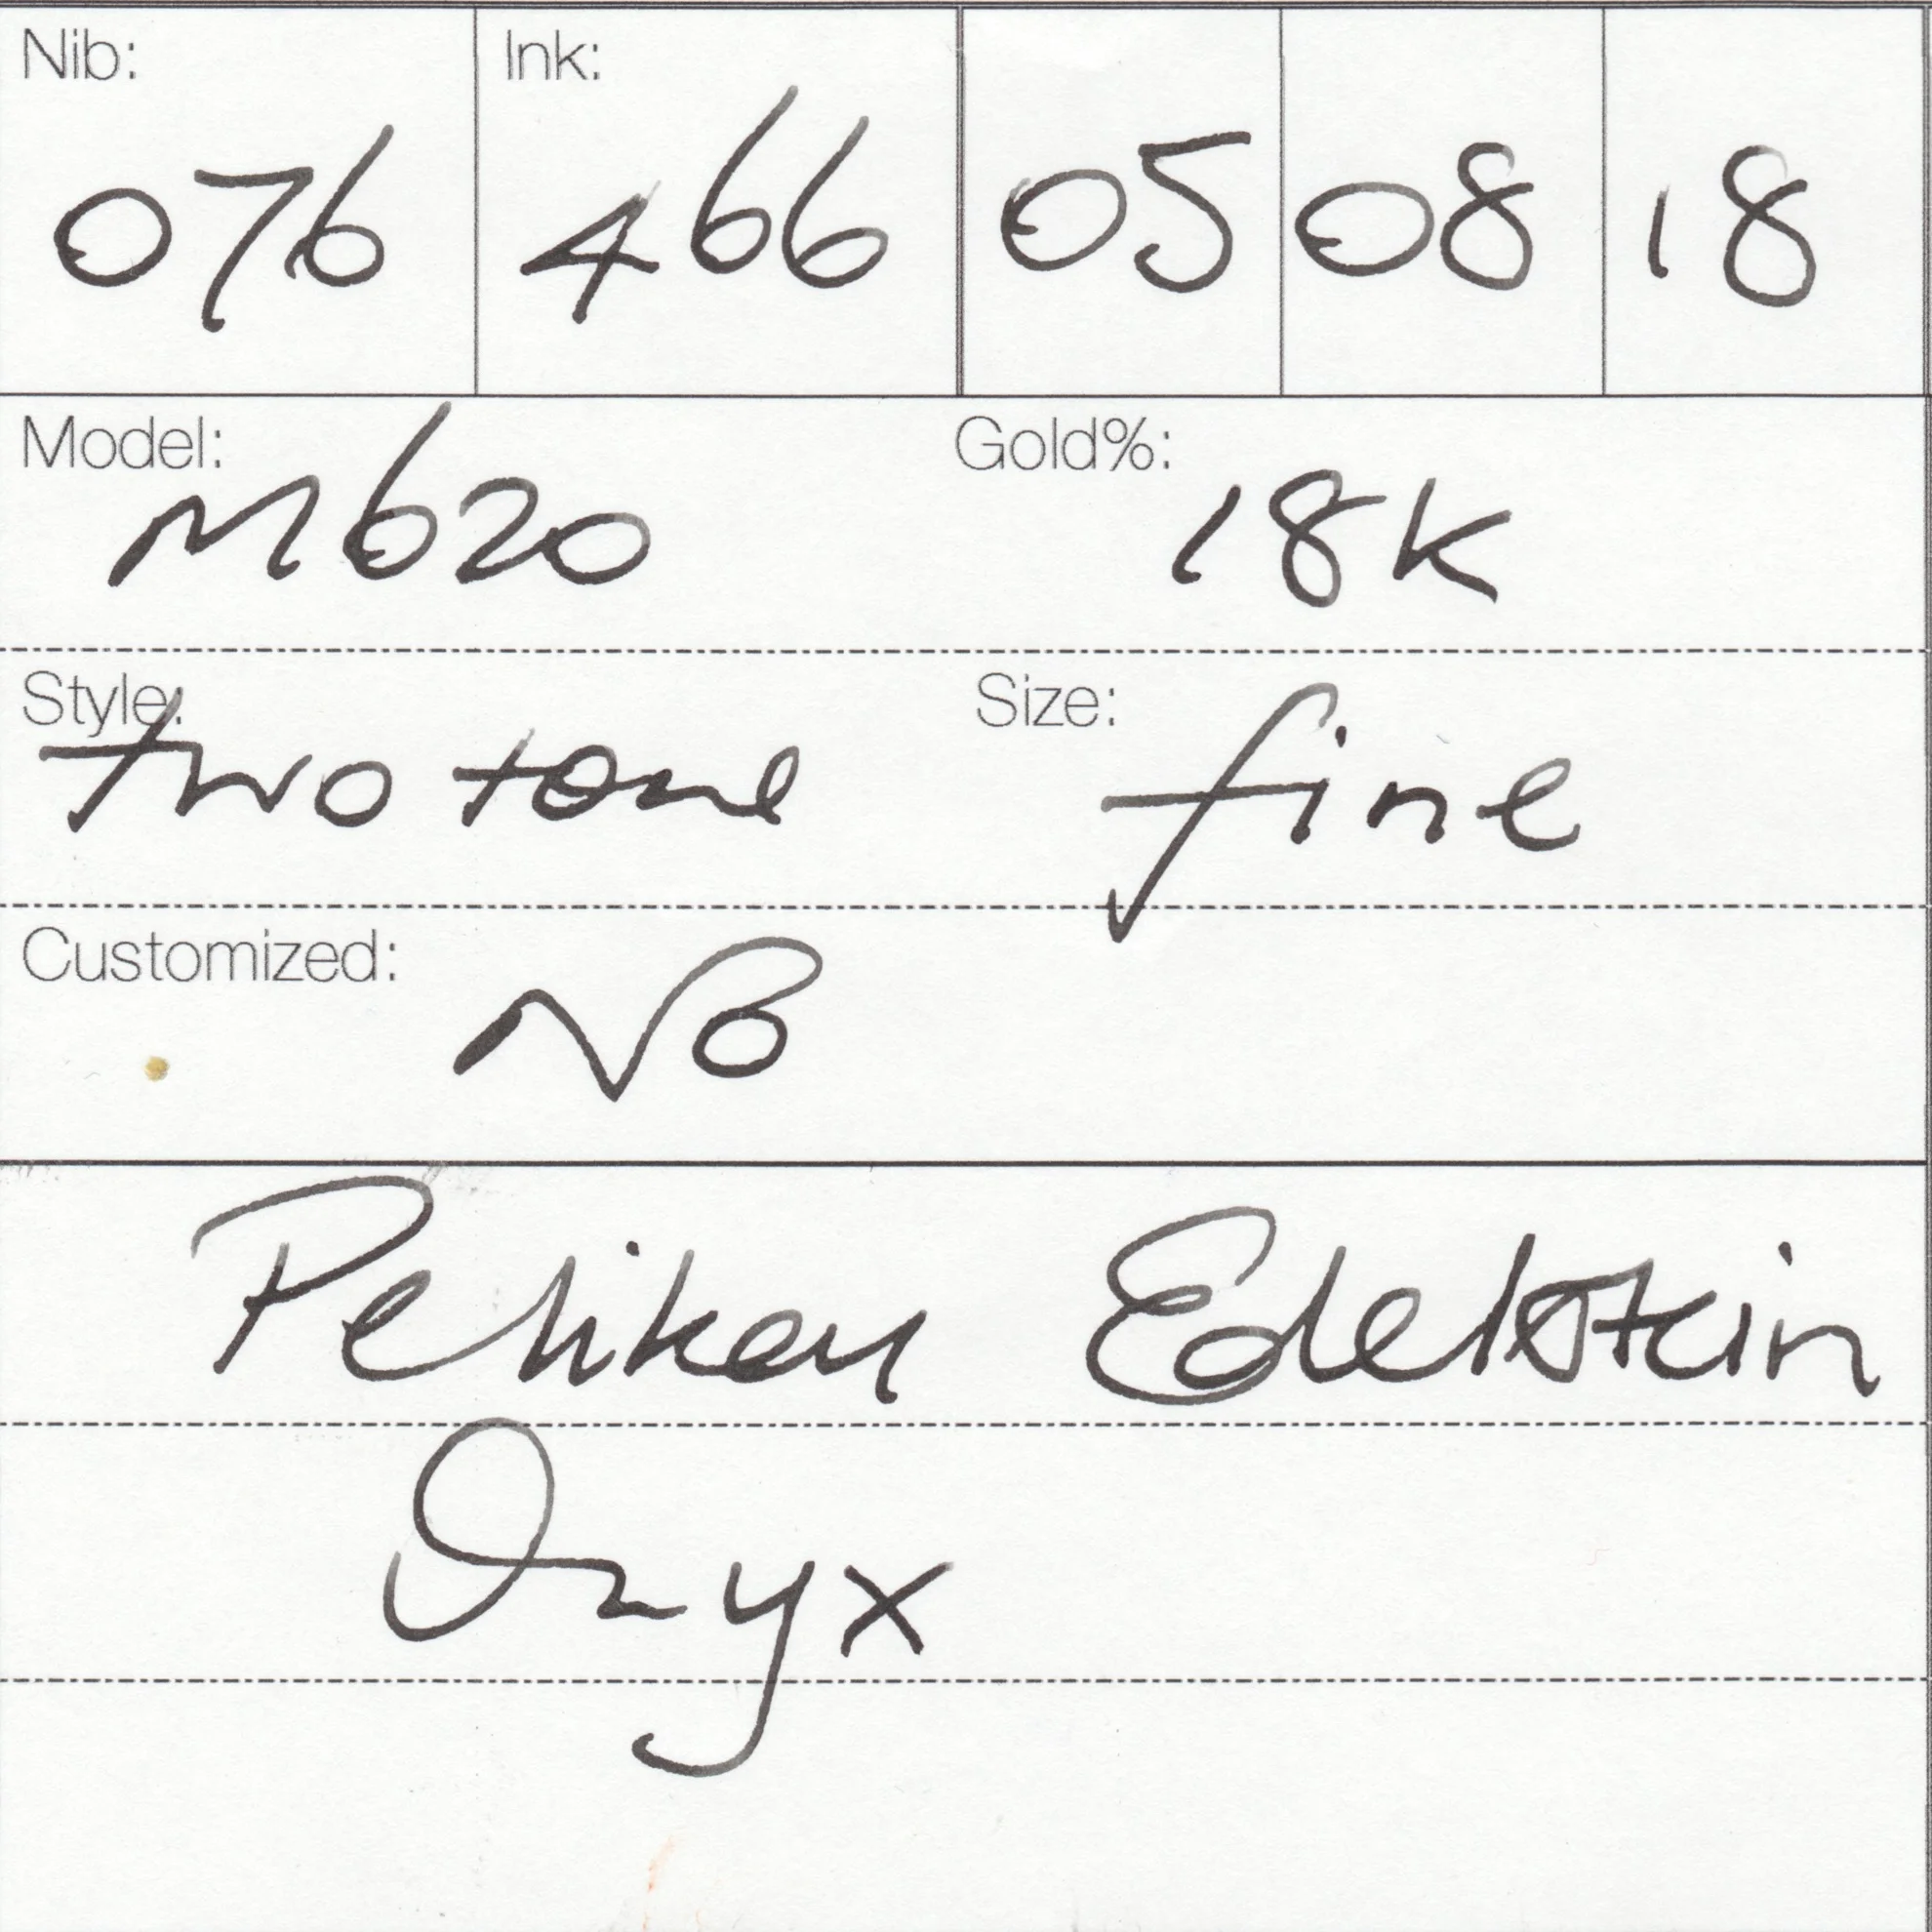 Nib: Ink:
076 466 05 08 18
Model: M620 Gold%: 18K
Style: two tone Size: fine
Customized: No
Pelikan Edelstein
Onyx